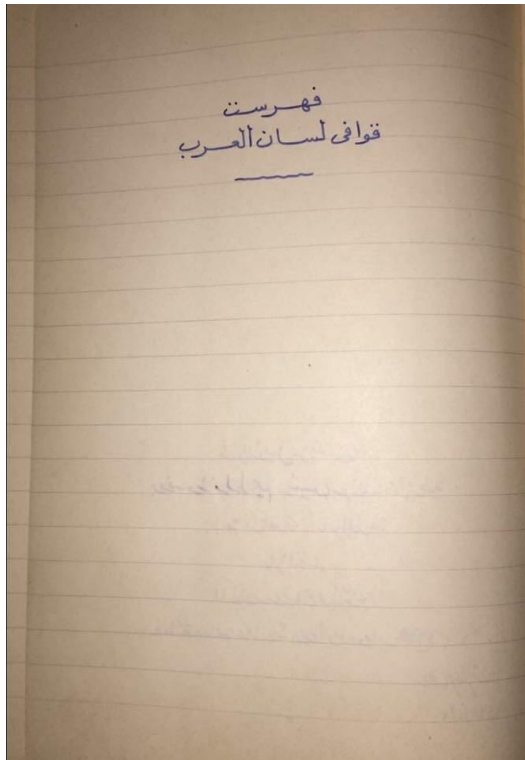 فهرست
قوافى لسان العرب